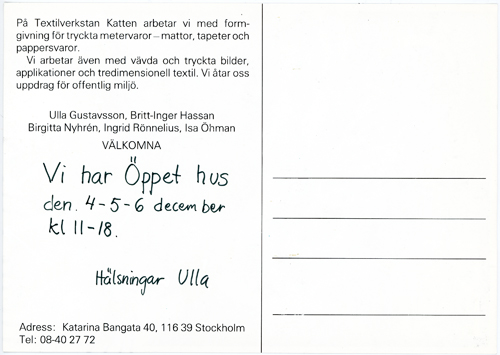 På Textilverkstan Katten arbetar vi med form-
givning för tryckta metervaror – mattor, tapeter och
pappersvaror.
Vi arbetar även med vävda och tryckta bilder,
applikationer och tredimensionell textil. Vi åtar oss
uppdrag för offentlig miljö.
Ulla Gustavsson, Britt-Inger Hassan
Birgitta Nyhrén, Ingrid Rönnelius, Isa Öhman
VÄLKOMNA
Vi har Öppet hus
den. 4-5-6 december
kl 11-18.
Hälsningar Ulla
Adress: Katarina Bangata 40, 116 39 Stockholm
Tel: 08-40 27 72